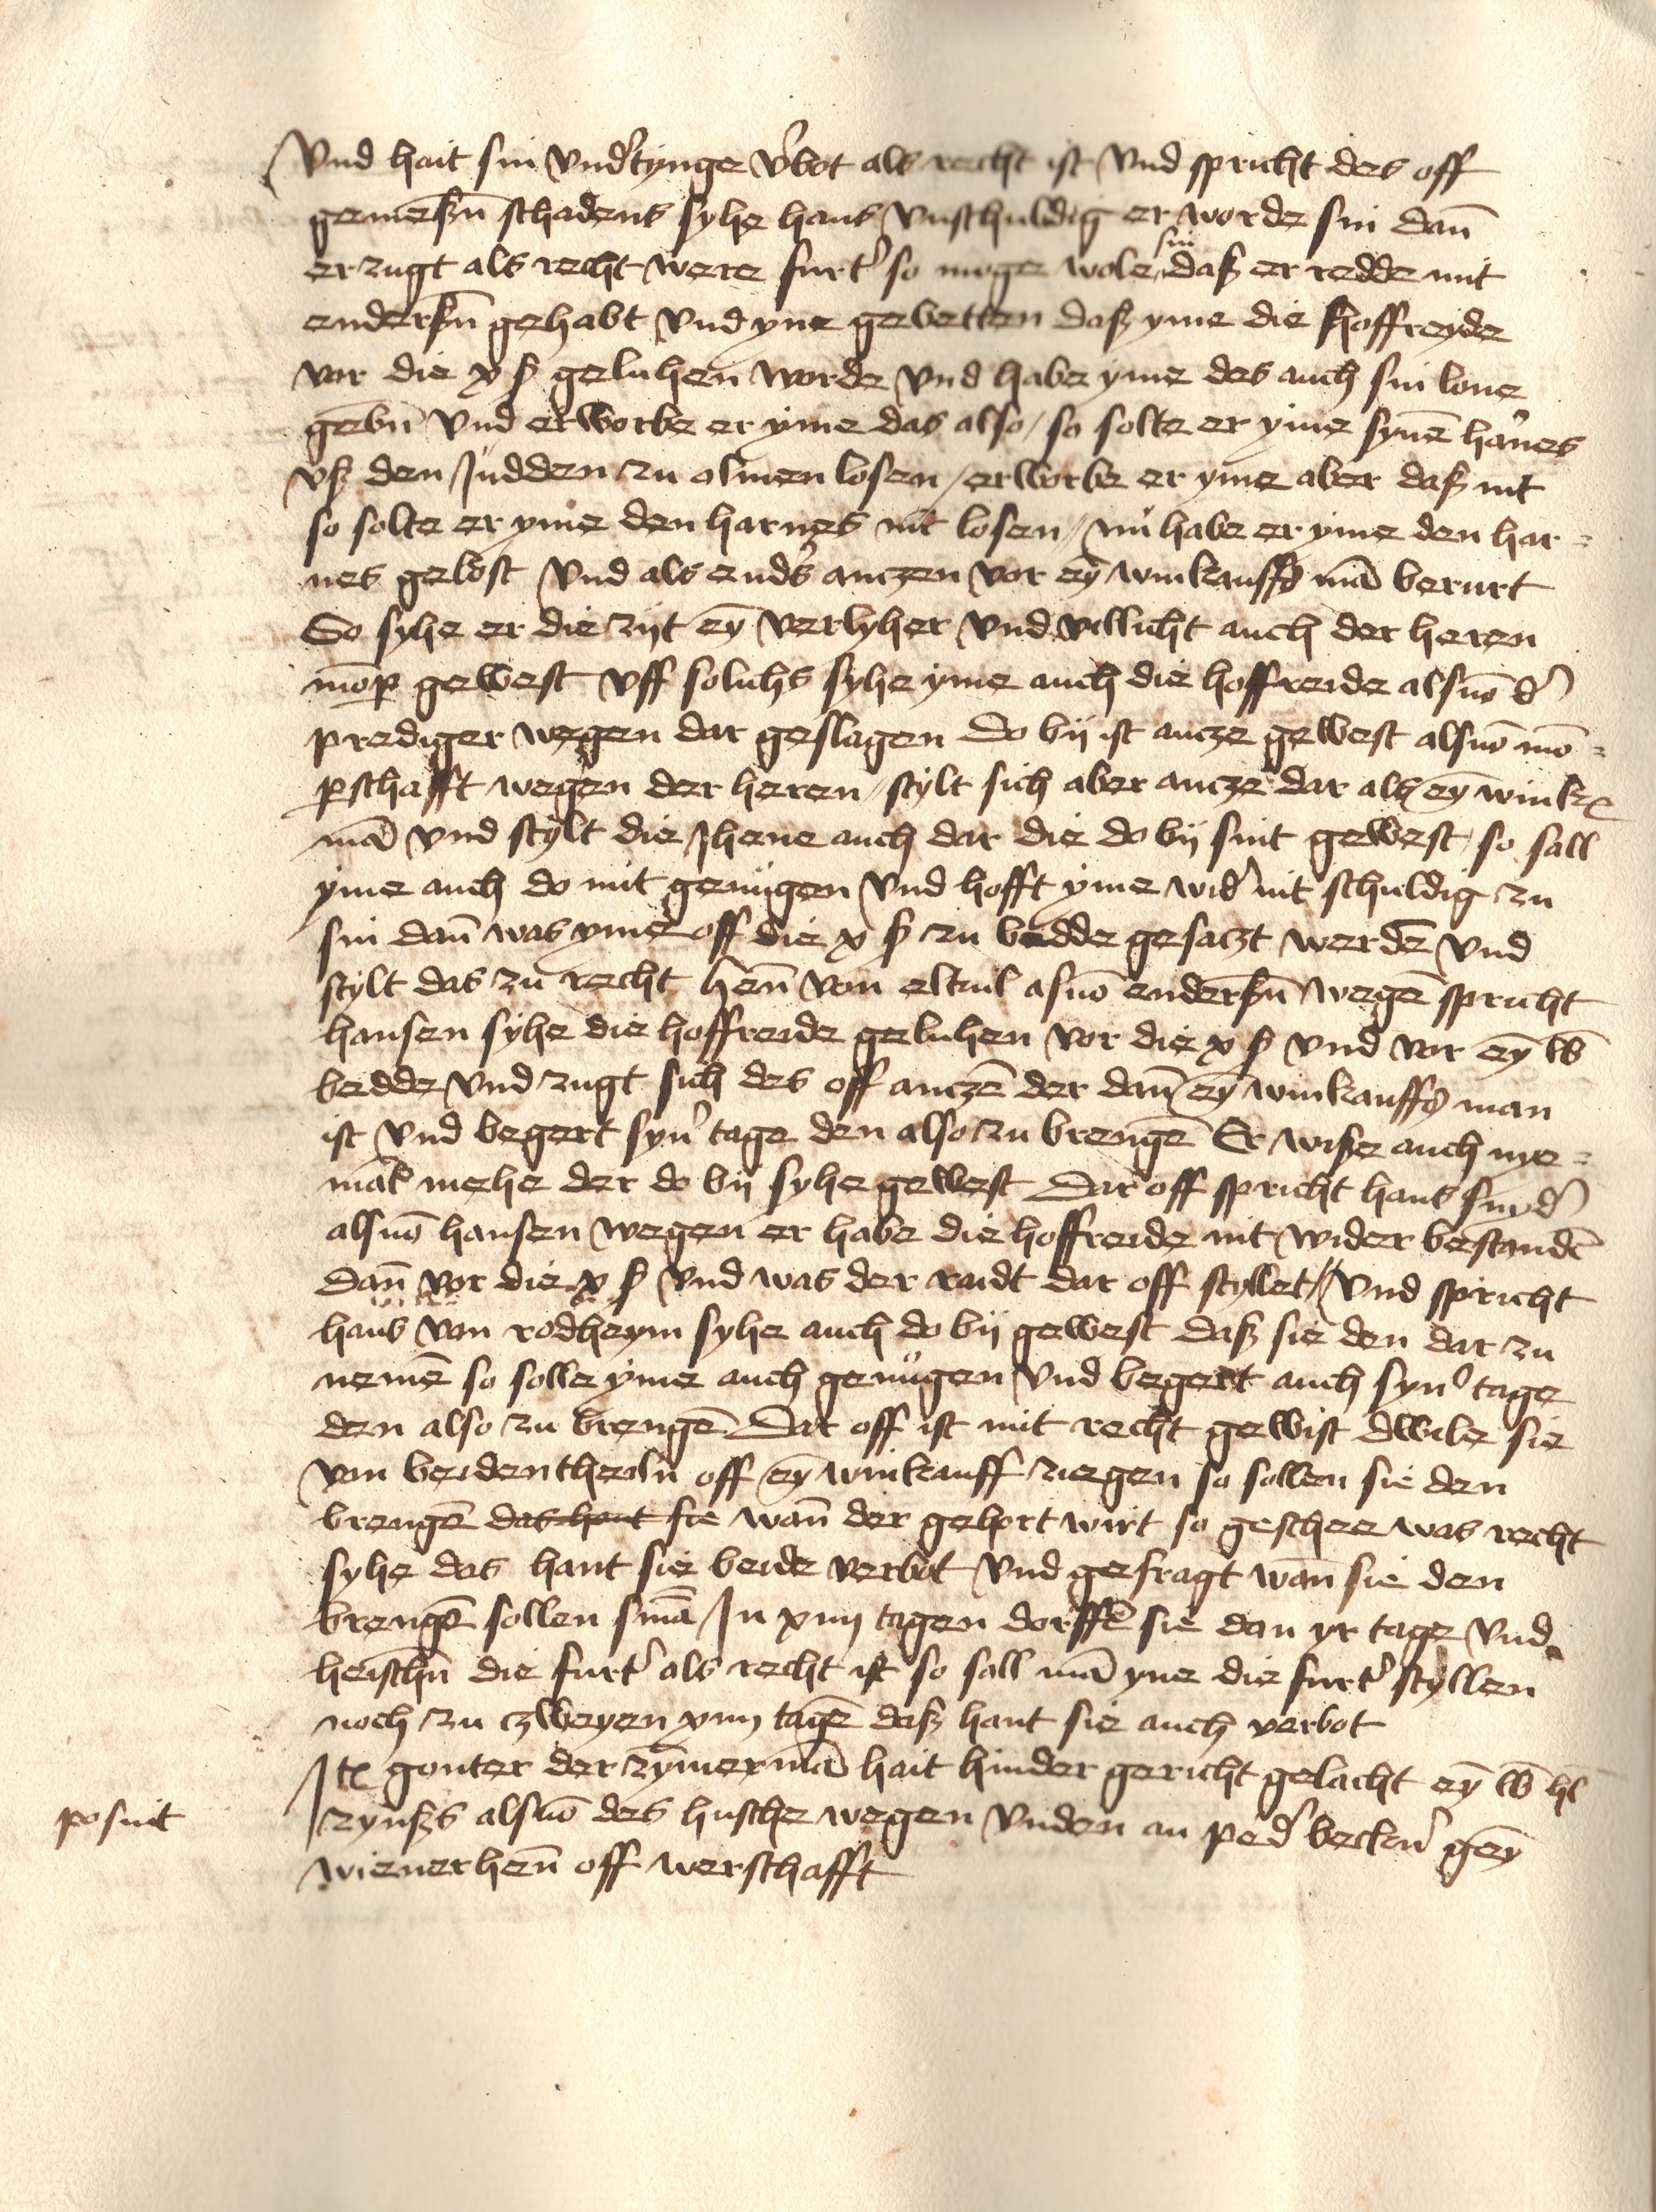 Vnd hait sin vnd'tynge v'bot als recht ist Vnd spricht des off
gemeßñ schadens syhe hans vnschuldig er worde sin dañ
erzugt als recht were furt' so moge wole sin daß er redde mit
enderßñ gehabt Vnd yne gebetten daß yme die hoffreyde
vor die x ß geluhen worde Vnd habe yme des auch sin lone
gebñ Vnd erworbe er yme das also / so solte er yme synē harnes
vß den Judden zu olmen losen / erworbe er yme aber daß nit
so solte er yme den harnes nit losen / nu habe er yme den har=
nes gelost Vnd als end's anczen vor eȳ winkauffs mā berurt
So syhe er die zijt eȳ verlyher Vnd villicht auch der heren
mōp gewest vff solichs syhe yme auch die hoffreide alsuō d'
prediger wegen dar geslagen do bij ist ancze gewest alsuō mō=
pschafft wegen der heren / stylt sich aber ancze dar als eȳ wink
mā vnd stylt die Jhene auch dar die do bij sint gewest / so sall
yme auch do mit genugen Vnd hofft yme wid' nit schuldig zu
sin dañ was yme off die x ß zu bedde gesaczt werdē Vnd
stylt das zu recht heñ von eltuil asuō enderßñ wegē spricht
hansen syhe die hoffreide geluhen vor die x ß Vnd vor eȳ
bedde Vnd zugt sich des off anczē der dañ eȳ winkauffs man
ist Vnd begert syn' tage den also zu brengē Er wiße auch nye=
mā mehe der do bij syhe gewest Dar off spricht hans snyd'
alsuō hansen wegen er habe die hoffreide nit wider bestandē
dañ vor die x ß Vnd was der raidt dar off styllet / Vnd spricht
hans von rodheym syhe auch do bij gewest daß sie den dar zu
nemē so solle yme auch genugen Vnd begert auch syn' tage
den also zu brengē Dar off ist mit recht gewist dwile sie
von beiden theiln off eȳ winkauff ziegen so sollen sie den
brengē das hant sie wañ der gehort wirt so geschee was recht
syhe das hant sie beide verbot Vnd gefragt wañ sie den
brengē sollen snīa In xiiij tagen dorffē sie dan yr tage Vnd
heischñ die furt' als recht ist so sall mā yne die furt' styllen
noch zu czweyen xiiij tagē daß hant sie auch verbot
Itē gonter der zȳmermā hait hinder gericht gelacht eȳ
zynßs alsuō des husche wegen vnden an ped' beckn' gēȳ
wienerheñ off werschafft
posuit